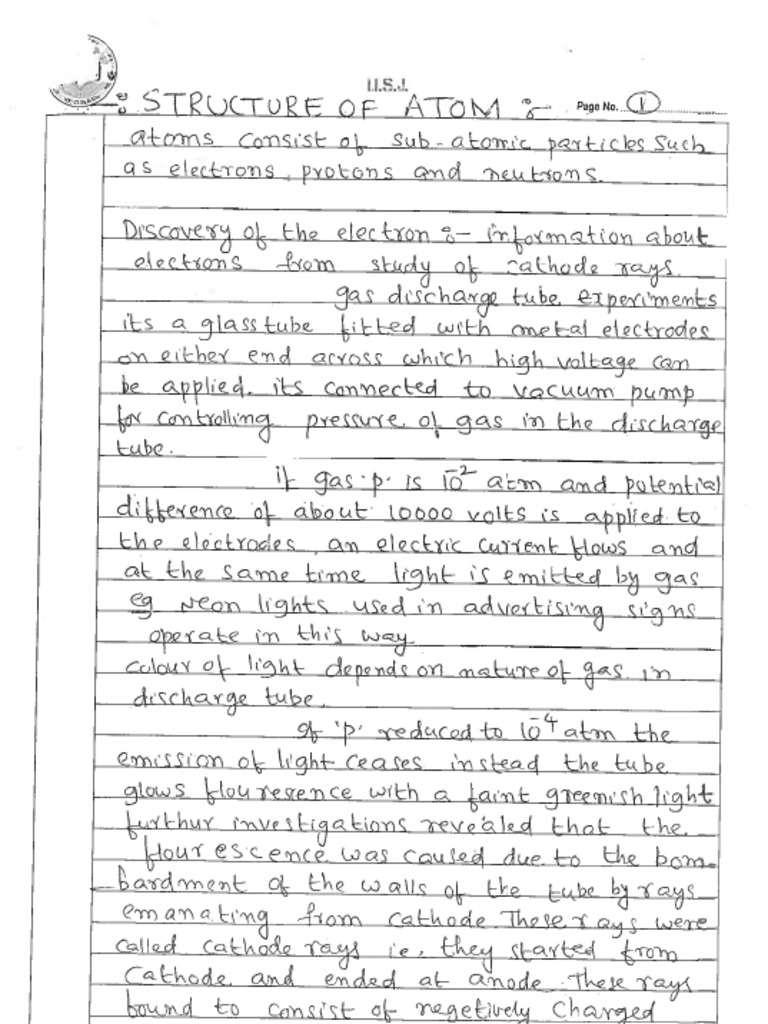 I.I.S.J.
:- STRUCTURE OF ATOM :-
Page No. 1
atoms consist of sub-atomic particles such
as electrons, protons and neutrons.
Discovery of the electron :- information about
electrons from study of cathode rays.
gas discharge tube experiments
its a glass tube fitted with metal electrodes
on either end across which high voltage can
be applied. its connected to vacuum pump
for controlling pressure of gas in the discharge
tube.
if gas 'p' is 10⁻² atm and potential
difference of about 10000 volts is applied to
the electrodes, an electric current flows and
at the same time light is emitted by gas
eg Neon lights used in advertising signs
operate in this way
colour of light depends on nature of gas in
discharge tube.
If 'p' reduced to 10⁻⁴ atm the
emission of light ceases instead the tube
glows flouresence with a faint greenish light
furthur investigations revealed that the
flourescence was caused due to the bom-
bardment of the walls of the tube by rays
emanating from cathode. These rays were
called cathode rays ie. they started from
cathode and ended at anode. These rays
bound to consist of negetively charged